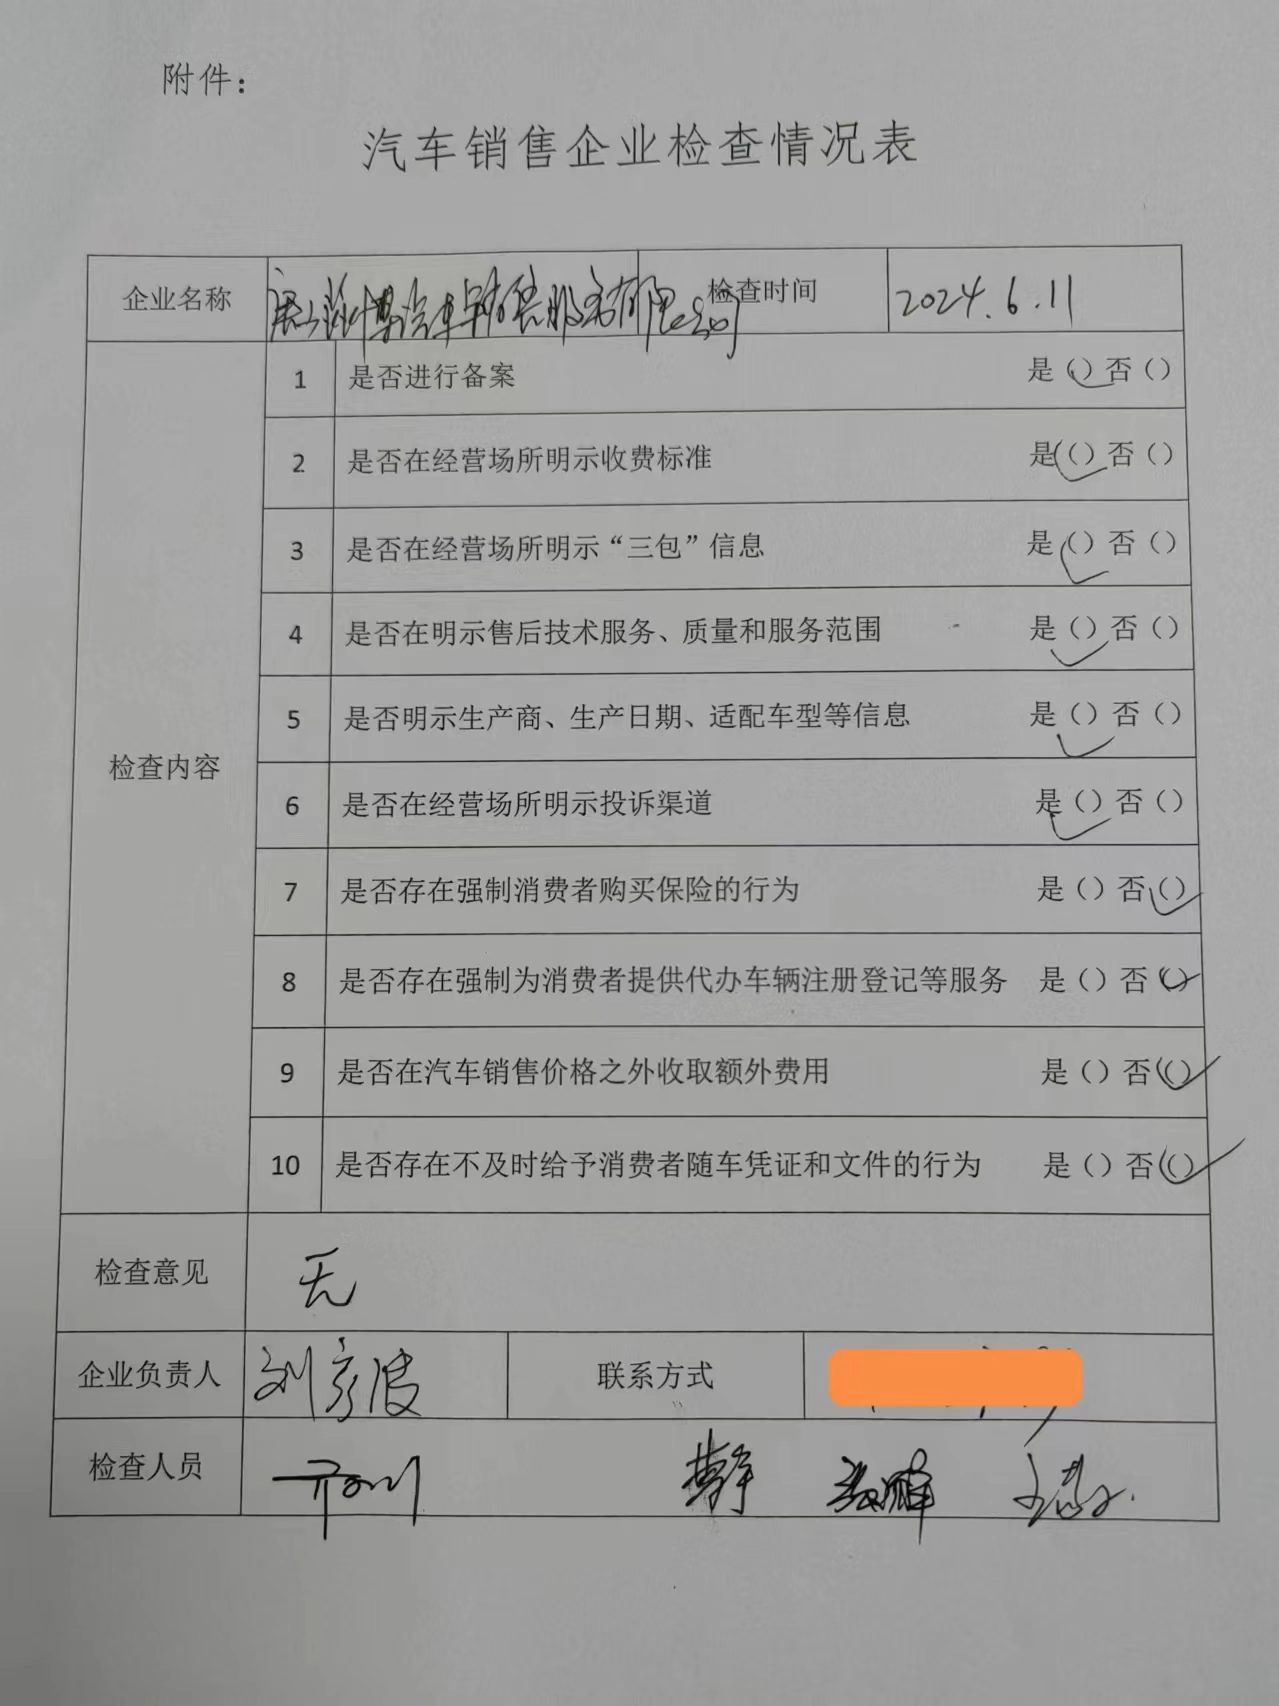 附件：
汽车销售企业检查情况表
企业名称 汽车销售服务有限公司 检查时间 2024.6.11
检查内容
1 是否进行备案 是（）否（）
2 是否在经营场所明示收费标准 是（）否（）
3 是否在经营场所明示“三包”信息 是（）否（）
4 是否在明示售后技术服务、质量和服务范围 是（）否（）
5 是否明示生产商、生产日期、适配车型等信息 是（）否（）
6 是否在经营场所明示投诉渠道 是（）否（）
7 是否存在强制消费者购买保险的行为 是（）否（）
8 是否存在强制为消费者提供代办车辆注册登记等服务 是（）否（）
9 是否在汽车销售价格之外收取额外费用 是（）否（）
10 是否存在不及时给予消费者随车凭证和文件的行为 是（）否（）
检查意见 无
企业负责人 刘彦波 联系方式
检查人员